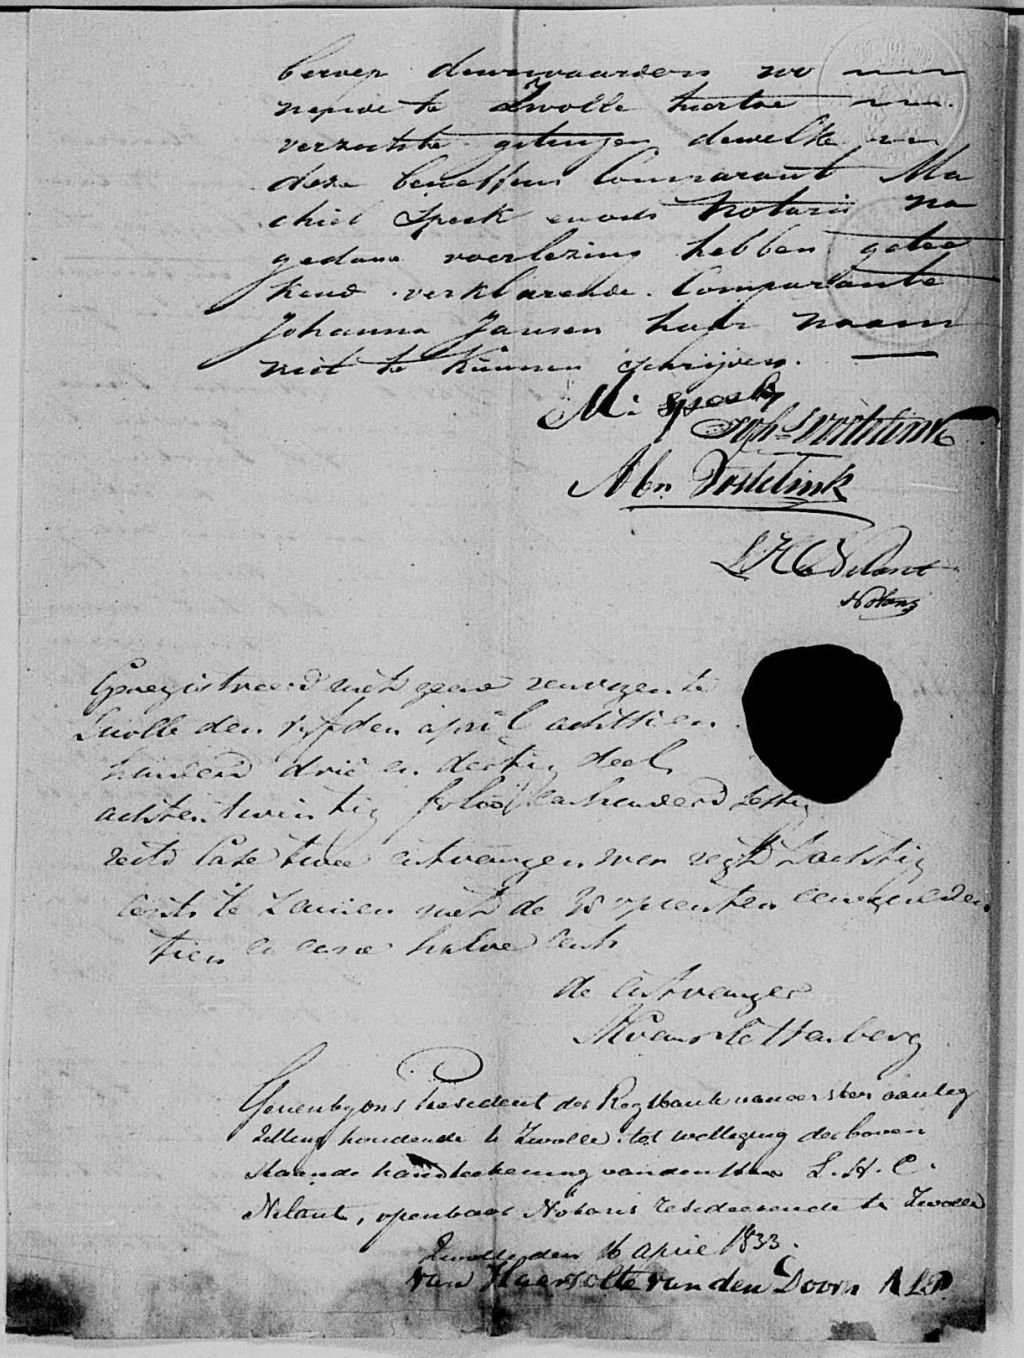 beroep deurwaarders wo
nende te Zwolle hiertoe
verzochte getuigen dewelke
deze beneffens Comparant Ma
chiel Speek en ons Notaris na
gedane voorlezing hebben getee
kend verklarende Comparante
Johanna Jansen haar naam
niet te kunnen schrijven.
M: Speek
Joh.s Vosdelink
Abn. Vosdelink
L H C Nilant
Notaris
Geregistreerd met geene renvoyen te
Zwolle den vyfden april achttien
honderd drie en dertig deel
achtentwintig folio honderd zestig
recto Case twee ontvangen voor regt tachtig
cents te zamen met de 38 opcenten een gulden
tien en eene halve cents
de ontvanger
Gezien by ons President der Regtbank van eersten aanleg
zitting houdende te Zwolle tot wettiging der boven
staande handteekening van den Heer L. H. C.
Nilant, openbaar Notaris resideerende te Zwolle
Zwolle den 16 April 1833.
van Haersolte van den Doorn